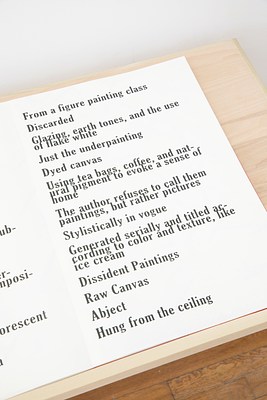 ub-
er-
mposi-
orescent
a
From a figure painting class
Discarded
Glazing, earth tones, and the use
of flake white
Just the underpainting
Dyed canvas
Using tea bags, coffee, and nat-
ural pigment to evoke a sense of
home
The author refuses to call them
paintings, but rather pictures
Stylistically in vogue
Generated serially and titled ac-
cording to color and texture, like
ice cream
Dissident Paintings
Raw Canvas
Abject
Hung from the ceiling